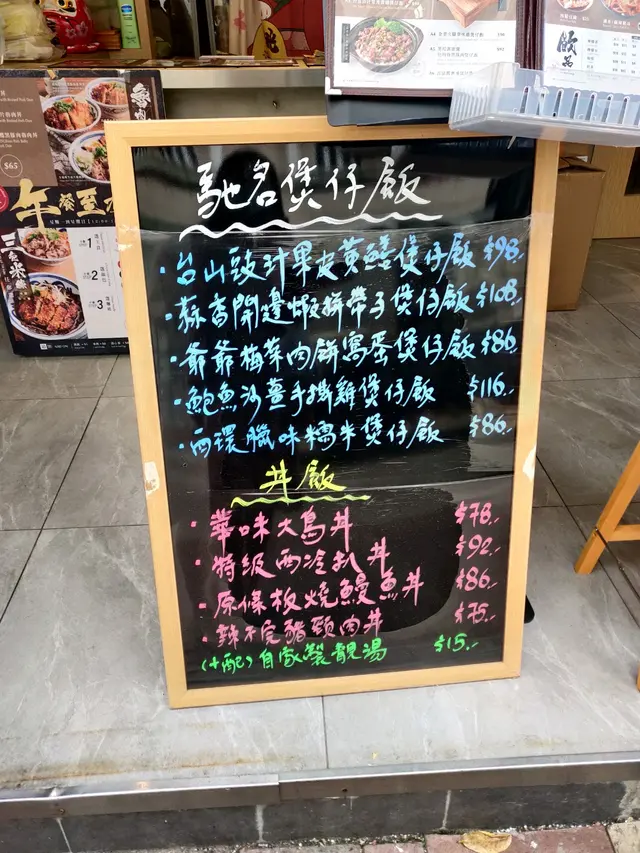 馳名煲仔飯
·台山豉汁果皮黃鱔煲仔飯 $98.-
·蒜香開邊蝦拼帶子煲仔飯 $108.-
·爺爺梅菜肉餅窩蛋煲仔飯 $86
·鮑魚沙薑手撕雞煲仔飯 $116.-
·西環臘味糯米煲仔飯 $86.-
丼飯
·華味大鳥丼 $78.-
·特級西冷扒丼 $92.-
·原條板燒鰻魚丼 $86.-
·辣不完豬頸肉丼 $75.-
(+配) 自家製靚湯 $15.-
$65
1
2
3